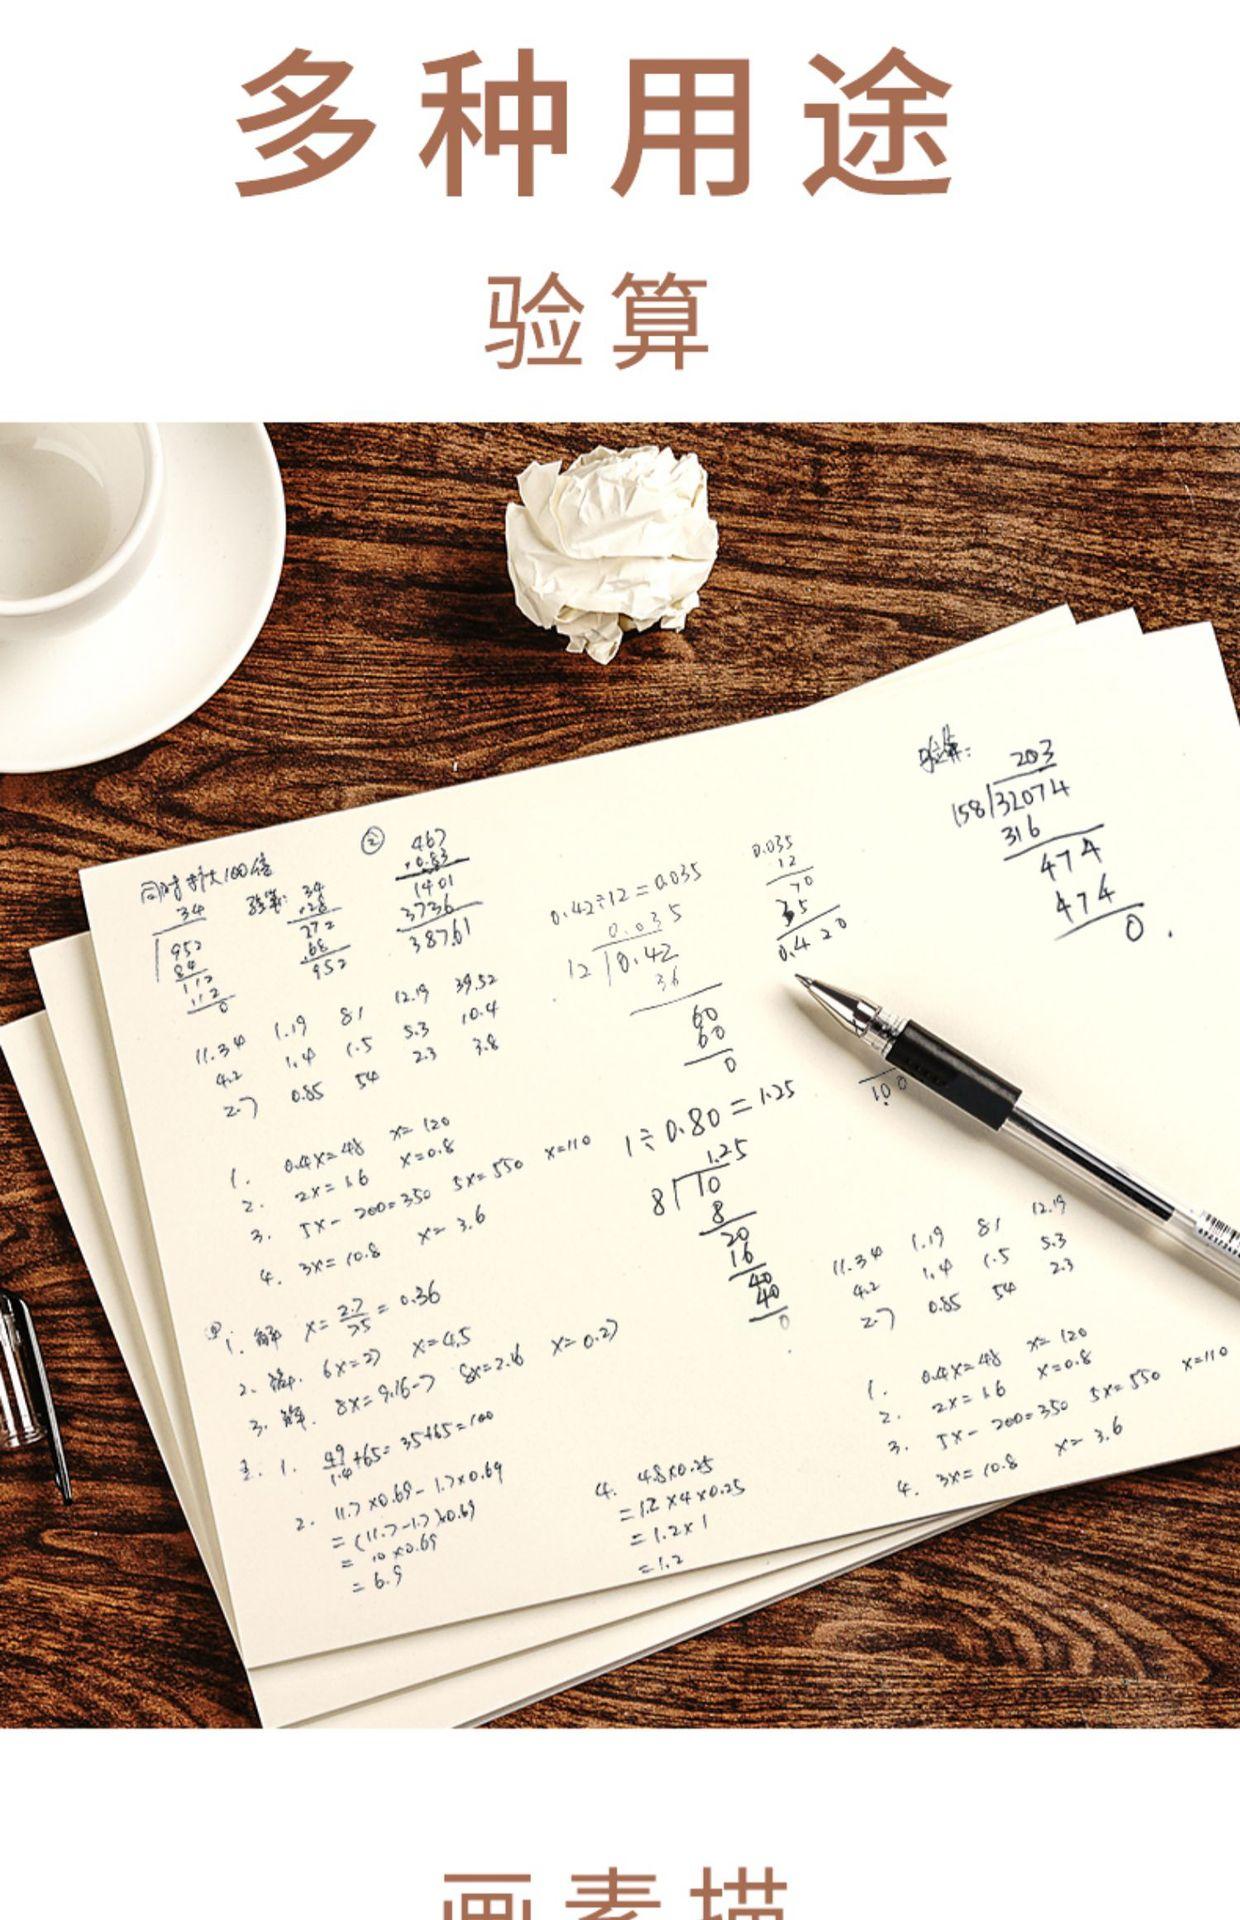 多种用途
验算
同时扩大100倍
34
952
84
112
112
0
验算:
34
×28
272
68
952
②
467
×0.83
1401
3736
387.61
0.42÷12=0.035
0.035
12
0.42
36
60
60
0
0.035
12
70
35
0.420
验算:
203
158
32074
316
474
474
0
100
11.34 1.19 81 12.19 39.52
4.2 1.4 1.5 5.3 10.4
2.7 0.85 54 2.3 3.8
1. 0.4x=48 x=120
2. 2x=1.6 x=0.8
3. 5x-200=350 5x=550 x=110
4. 3x=10.8 x=3.6
1÷0.80=1.25
1.25
8
10
8
20
16
40
40
0
1. 解 x=2.7/7.5=0.36
2. 解. 6x=27 x=4.5
3. 解. 8x=9.16-7 8x=2.16 x=0.27
1. 49/1.4+65=35+65=100
2. 11.7×0.69-1.7×0.69
=(11.7-1.7)×0.69
=10×0.69
=6.9
4. 4.8×0.25
=1.2×4×0.25
=1.2×1
=1.2
11.34 1.19 81 12.19
4.2 1.4 1.5 5.3
2.7 0.85 54 2.3
1. 0.4x=48 x=120
2. 2x=1.6 x=0.8
3. 5x-200=350 5x=550 x=110
4. 3x=10.8 x=3.6
画素描